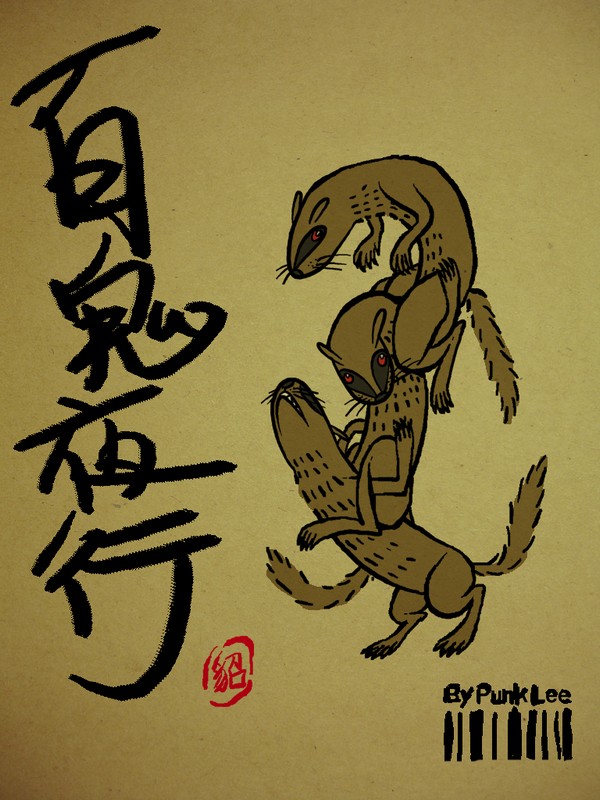 百鬼夜行
貂
By Punk Lee